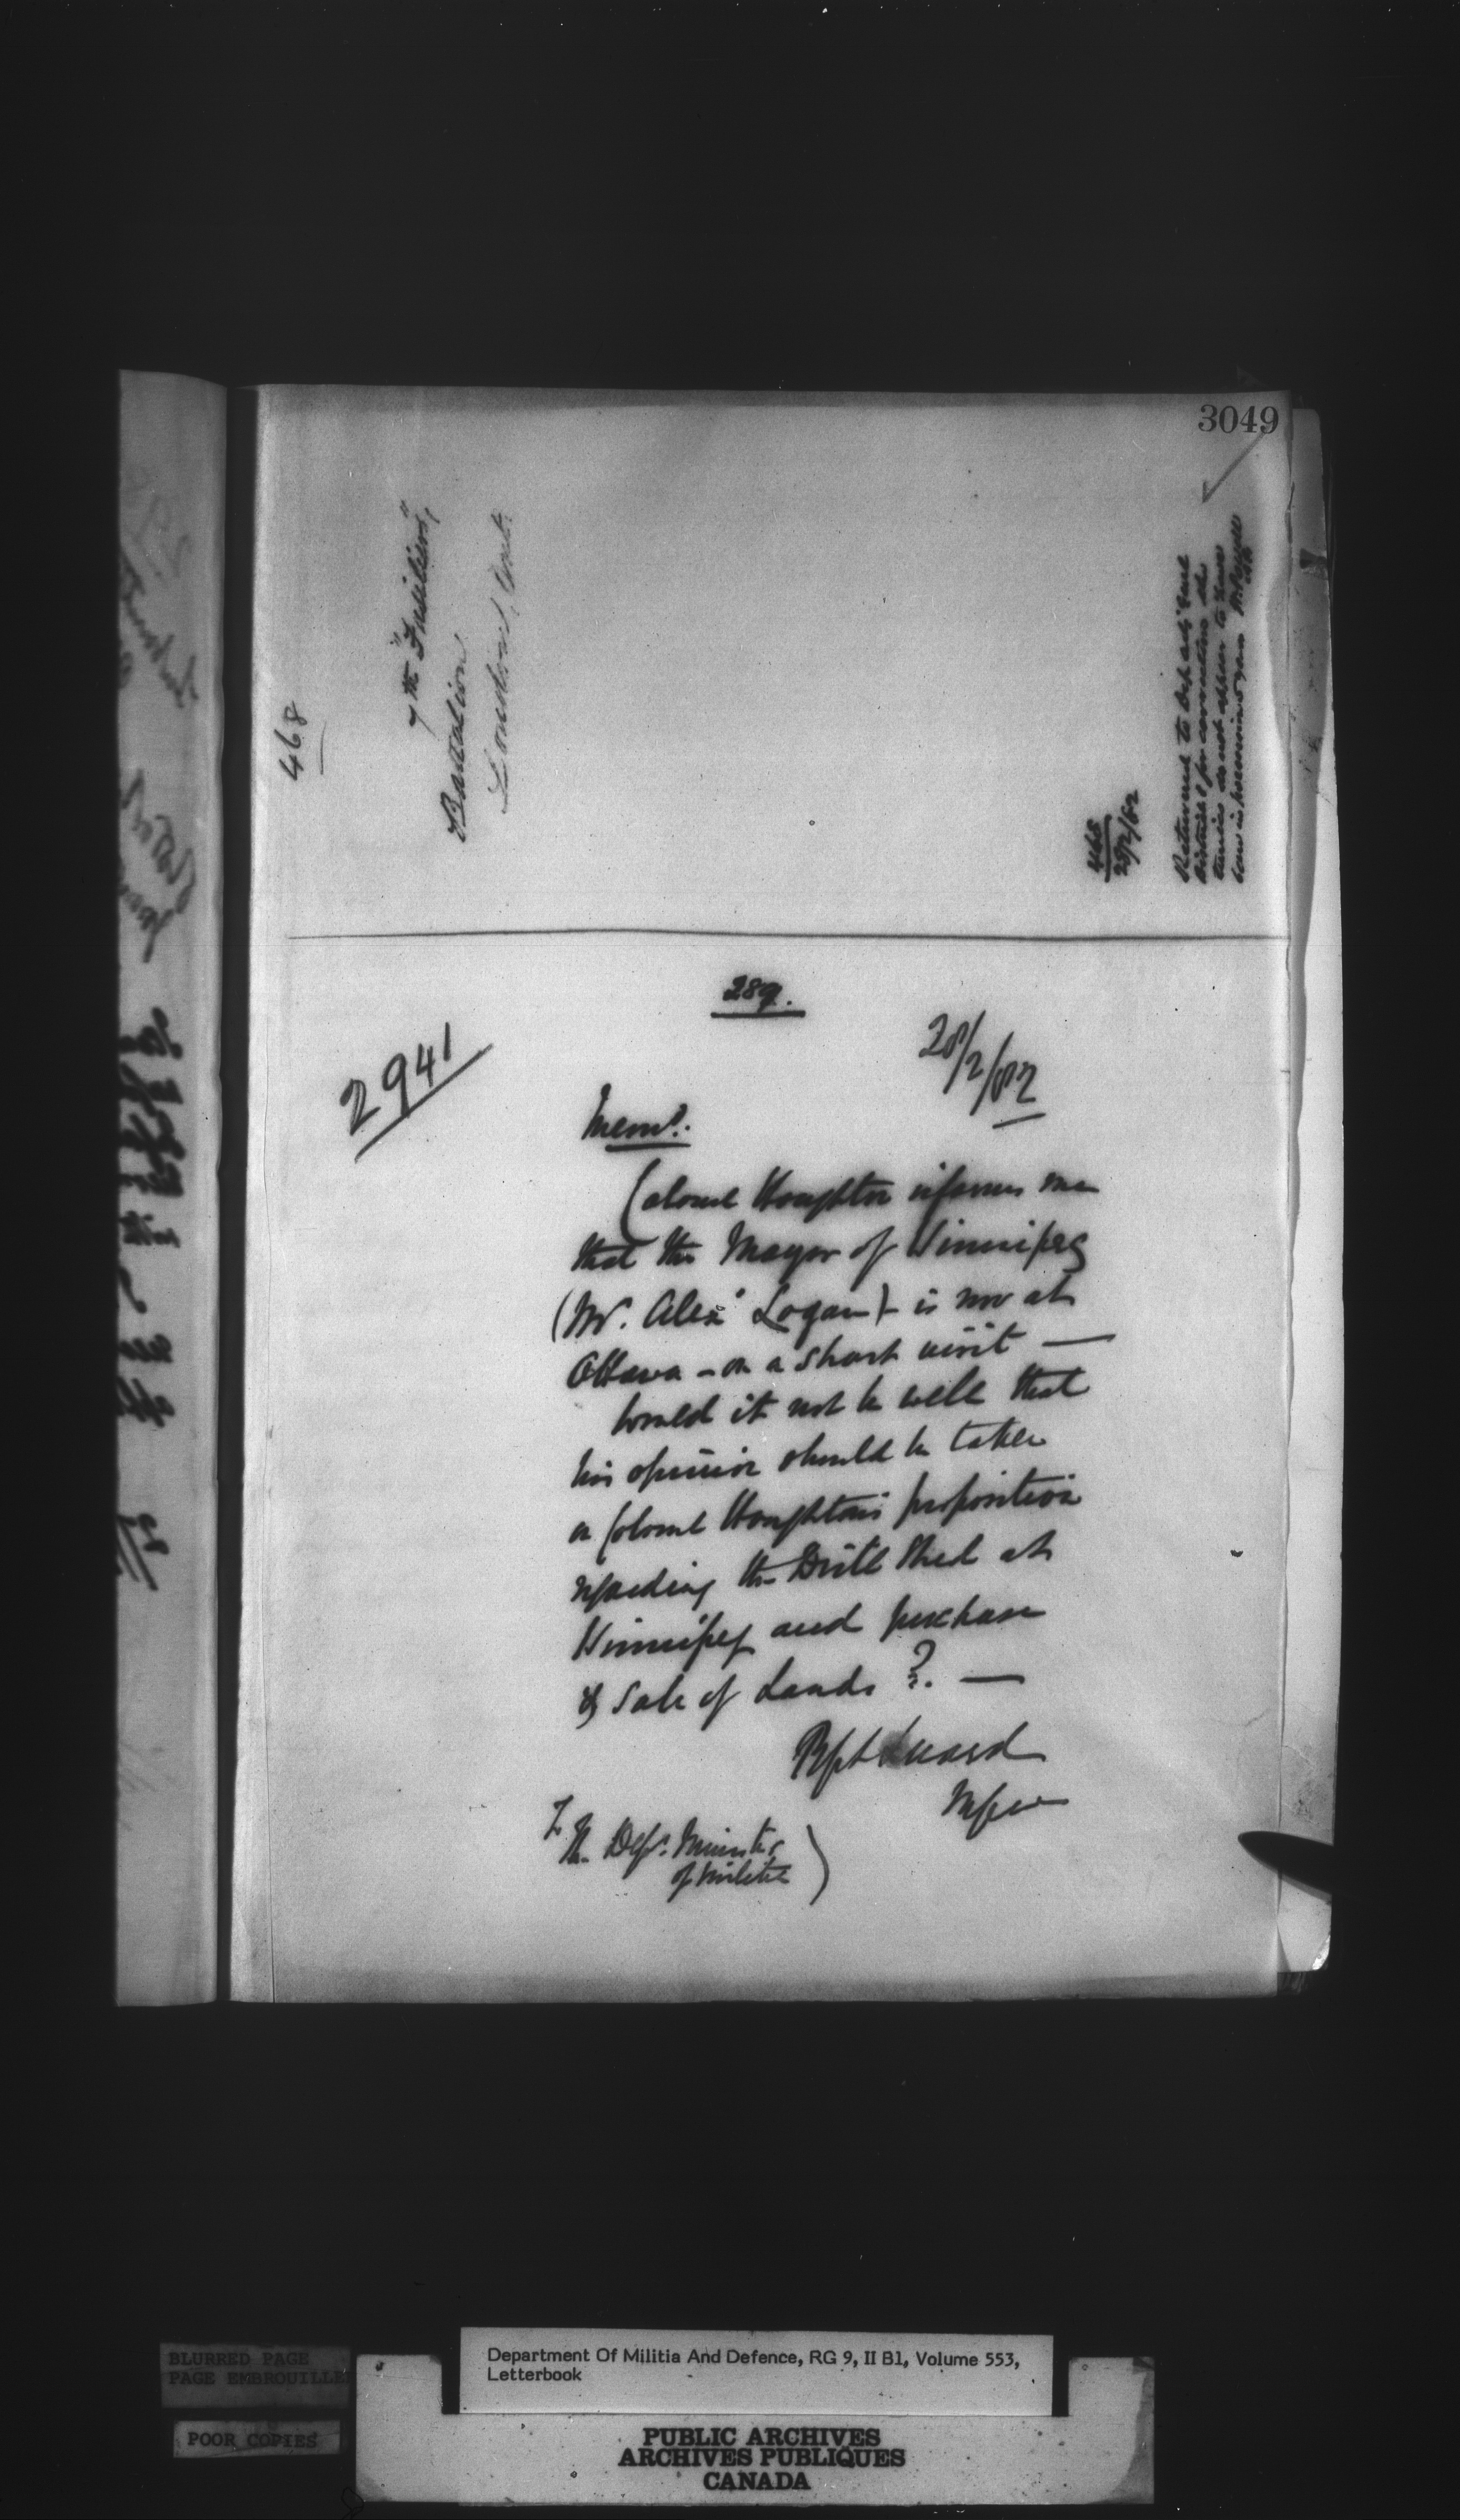 3049
468
7th "Fusiliers",
Battalion
London, Ont.
468
28/2/82
Returned to Dep adj Genl
District 1 for correction the
do not appear to have
been in years W Powell
289.
2941
28/2/82
Memo.
Colonel Houghton informs me
that the Mayor of Winnipeg
(Mr. Alexr Logan) – is now at
Ottawa – on a short visit —
Would it not be well that
his opinion should be taken
on Colonel Houghton's proposition
regarding the Drill Shed at
Winnipeg and purchase
& Sale of Lands ? —
Luard
M Gen
To
The Depy. Minister
of Militia
BLURRED PAGE
PAGE EMBROUILLEE
POOR COPIES
Department Of Militia And Defence, RG 9, II B1, Volume 553,
Letterbook
PUBLIC ARCHIVES
ARCHIVES PUBLIQUES
CANADA